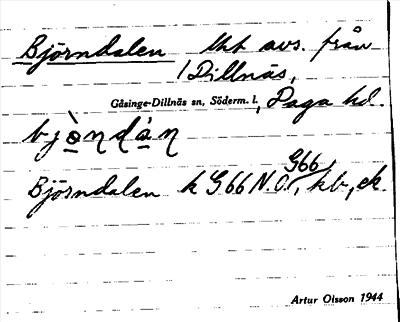 Björndalen lht avs. från
/ Dillnäs,
Gåsinge-Dillnäs sn, Söderm. l., Daga hd.
bjö̀ndán
G66
Björndalen k G66 N.O., kb, ek.
Artur Olsson 1944